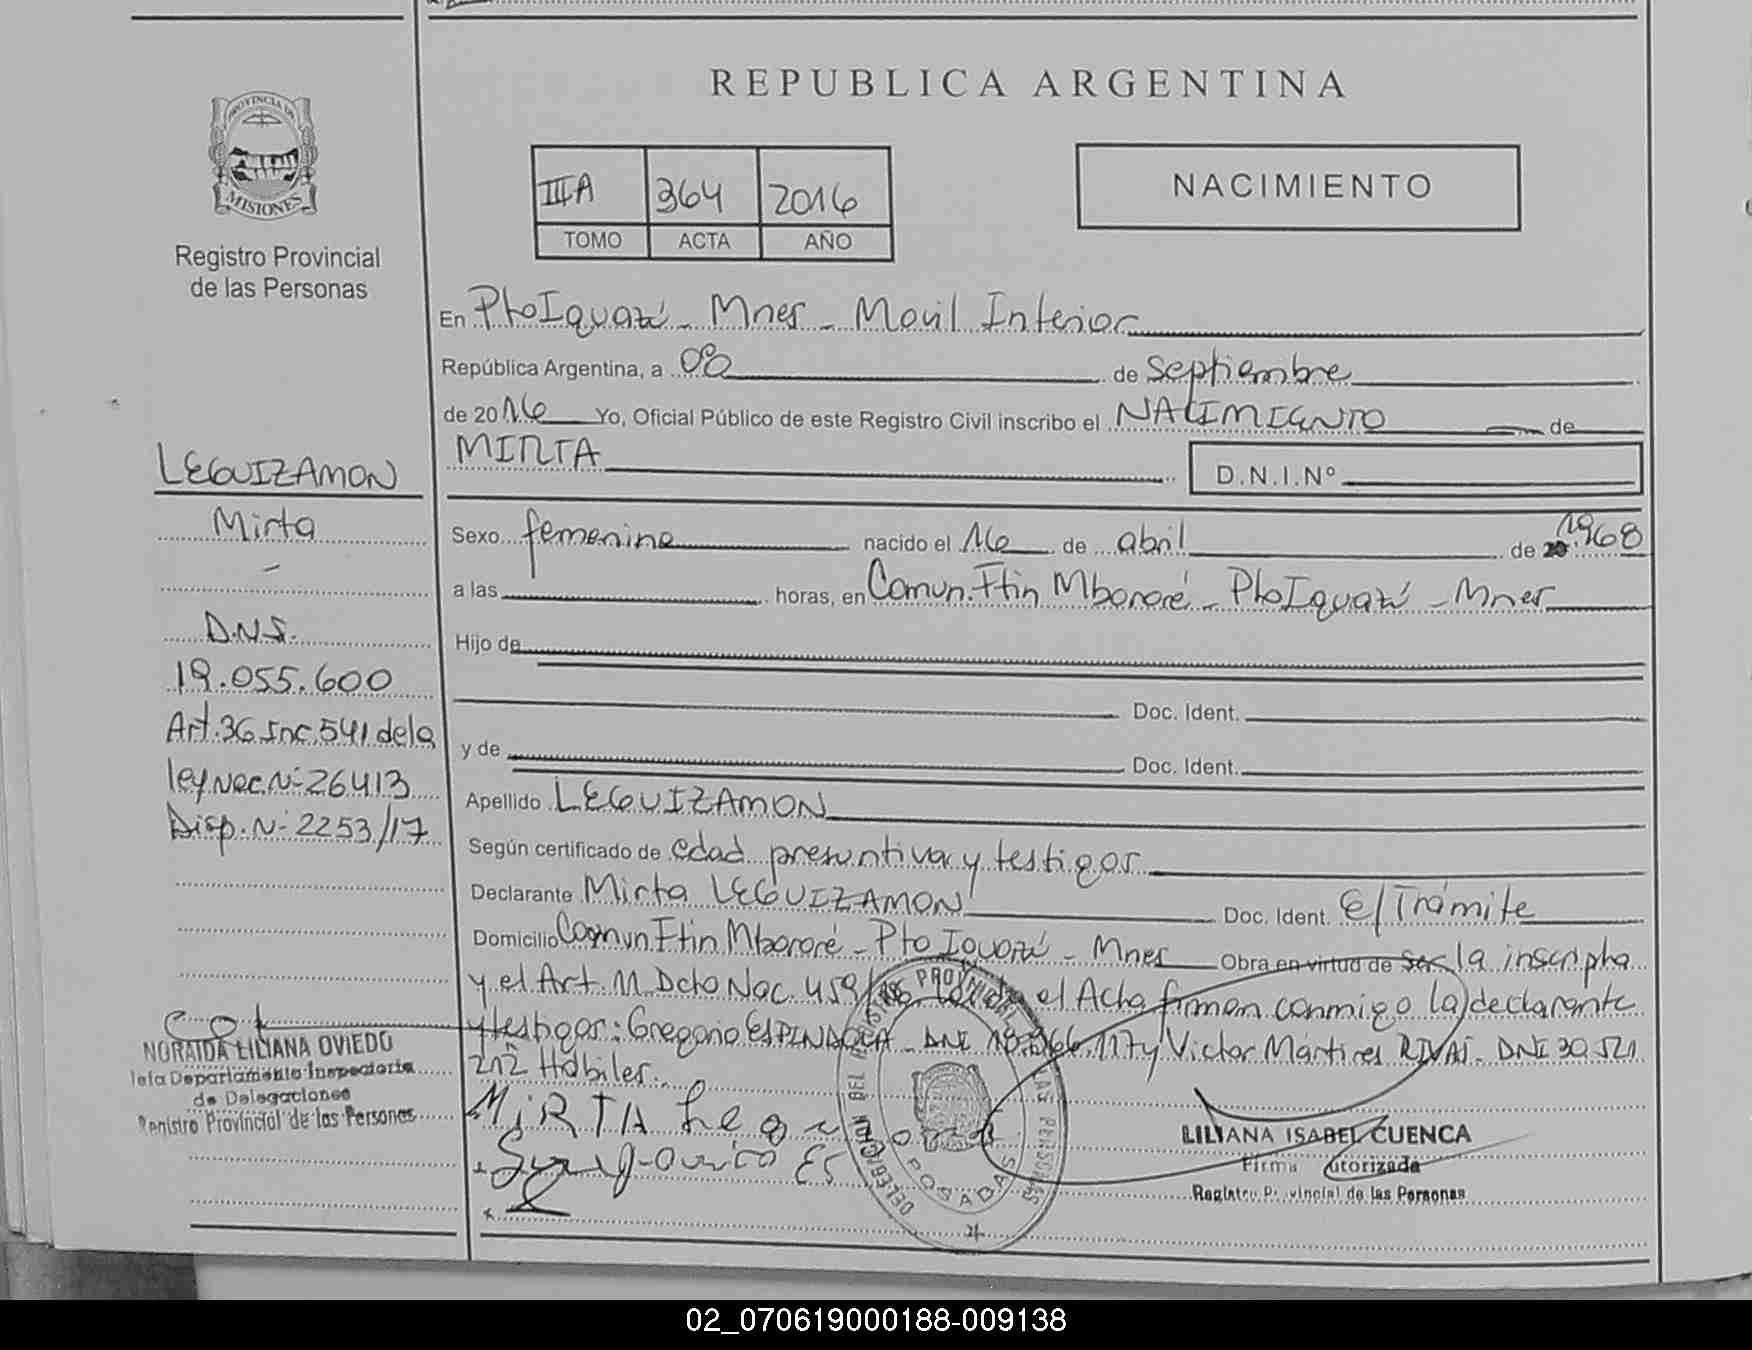 REPUBLICA ARGENTINA
PROVINCIA DE
MISIONES
Registro Provincial
de las Personas
IIA 364 2016
TOMO ACTA AÑO
NACIMIENTO
En Pto Iguazú - Mnes - Movil Interior
República Argentina, a 08 de septiembre
de 2016 Yo, Oficial Público de este Registro Civil inscribo el NACIMIENTO de
MIRTA D.N.I.Nº
Sexo femenino nacido el 16 de abril de 1968
a las horas, en Comun. Ftin Mbororé - Pto Iguazú - Mnes
Hijo de
Doc. Ident.
y de Doc. Ident.
Apellido LEGUIZAMON
Según certificado de edad presuntiva y testigos
Declarante Mirta LEGUIZAMON Doc. Ident. E/Trámite
Domicilio Comun Ftin Mbororé - Pto Iguazú - Mnes Obra en virtud de ser la inscripta
y el Art. 11 Dcto Nac. 459/ el Acta firman conmigo la declarante
y testigos: Gregorio ESPINDOLA - DNI 18. 66.117 y Victor Martires RIVAS - DNI 30.521
212 Hábiles.
MiRTA Legu
LEGUIZAMON
Mirta
-
D.N.I.
19.055.600
Art. 36 Inc. 541 de la
ley Nac. Nº 26413
Disp. Nº 2253/17
NORAIDA LILIANA OVIEDO
Jefa Departamento Inspectoria
de Delegaciones
Registro Provincial de las Personas
DELEGACION DEL REGISTRO PROVINCIAL DE LAS PERSONAS
POSADAS
LILIANA ISABEL CUENCA
Firma Autorizada
Registro Provincial de las Personas
02_070619000188-009138